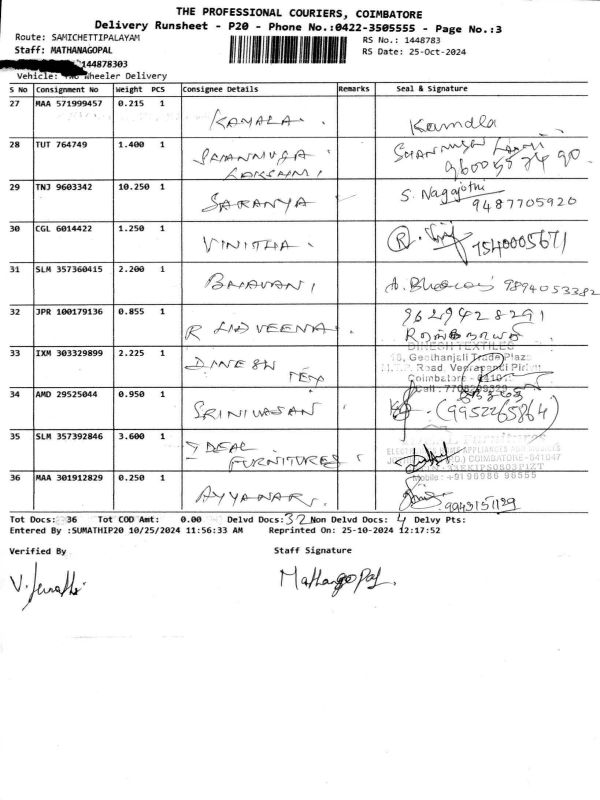 THE PROFESSIONAL COURIERS, COIMBATORE
Delivery Runsheet - P20 - Phone No.:0422-3505555 - Page No.:3
Route: SAMICHETTIPALAYAM
RS No.: 1448783
Staff: MATHANAGOPAL
RS Date: 25-Oct-2024
144878303
Vehicle: Two Wheeler Delivery
S No Consignment No Weight PCS Consignee Details Remarks Seal & Signature
27 MAA 571999457 0.215 1 KAMALA Kamala
28 TUT 764749 1.400 1 SHANMUGA LAKSHMI
29 TNJ 9603342 10.250 1 SARANYA S. Nagajothi
9487705920
30 CGL 6014422 1.250 1 VINITHA 7540005671
31 SLM 357360415 2.200 1 BHAVANI 9894053382
32 JPR 100179136 0.855 1 9629428291
33 IXM 303329899 2.225 1 DINESH TEX DINESH TEXTILES
Road, Veerapandi
Coimbatore
34 AMD 29525044 0.950 1 SRINIVASAN (9952265864)
35 SLM 357392846 3.600 1 IDEAL FURNITURES
COIMBATORE-641047
36 MAA 301912829 0.250 1 AYYANAR
Tot Docs: 36 Tot COD Amt: 0.00 Delvd Docs: 32 Non Delvd Docs: 4 Delvy Pts:
Entered By :SUMATHIP20 10/25/2024 11:56:33 AM Reprinted On: 25-10-2024 12:17:52
Verified By Staff Signature